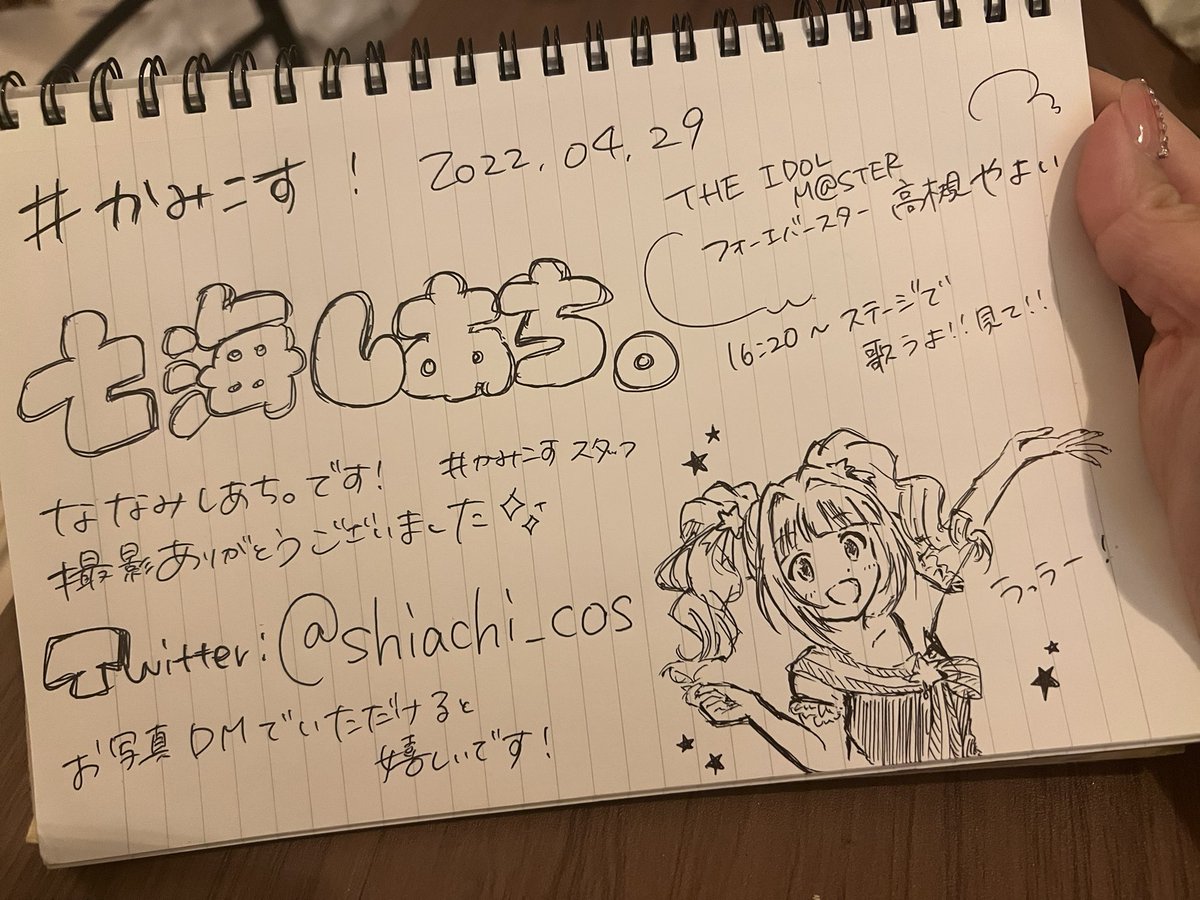 #かみこす! 2022.04.29
THE IDOL
M@STER
フォーエバースター 高槻やよい
16:20～ステージで
歌うよ!!見て!!
七海しあち。
ななみしあち。です! #かみこすスタッフ
撮影ありがとうございました
Twitter: @shiachi_cos
お写真DMでいただけると
嬉しいです!
うっうー!